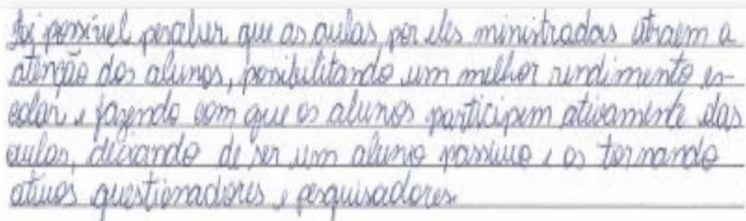 Foi possível perceber que as aulas por eles ministradas atraem a
atenção dos alunos, possibilitando um melhor rendimento es-
colar e fazendo com que os alunos participem ativamente das
aulas, deixando de ser um aluno passivo e os tornando
ativos questionadores e pesquisadores.